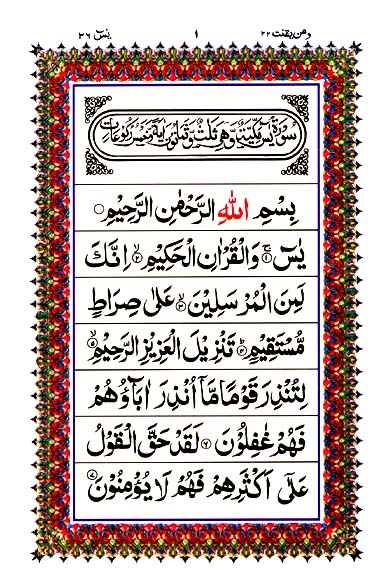 ومن يقنت ٢٢ ١ يٰسٓ ٣٦
سورة يس مكية وهي ثلث وثمانون اية وخمس ركوعات
بِسْمِ اللهِ الرَّحْمٰنِ الرَّحِيْمِ
يٰسٓ ۝١ وَالْقُرْاٰنِ الْحَكِيْمِ ۝٢ اِنَّكَ
لَمِنَ الْمُرْسَلِيْنَ ۝٣ عَلٰى صِرَاطٍ
مُّسْتَقِيْمٍ ۝٤ تَنْزِيْلَ الْعَزِيْزِ الرَّحِيْمِ ۝٥
لِتُنْذِرَ قَوْمًا مَّاۤ اُنْذِرَ اٰبَآؤُهُمْ
فَهُمْ غٰفِلُوْنَ ۝٦ لَقَدْ حَقَّ الْقَوْلُ
عَلٰٓى اَكْثَرِهِمْ فَهُمْ لَا يُؤْمِنُوْنَ ۝٧